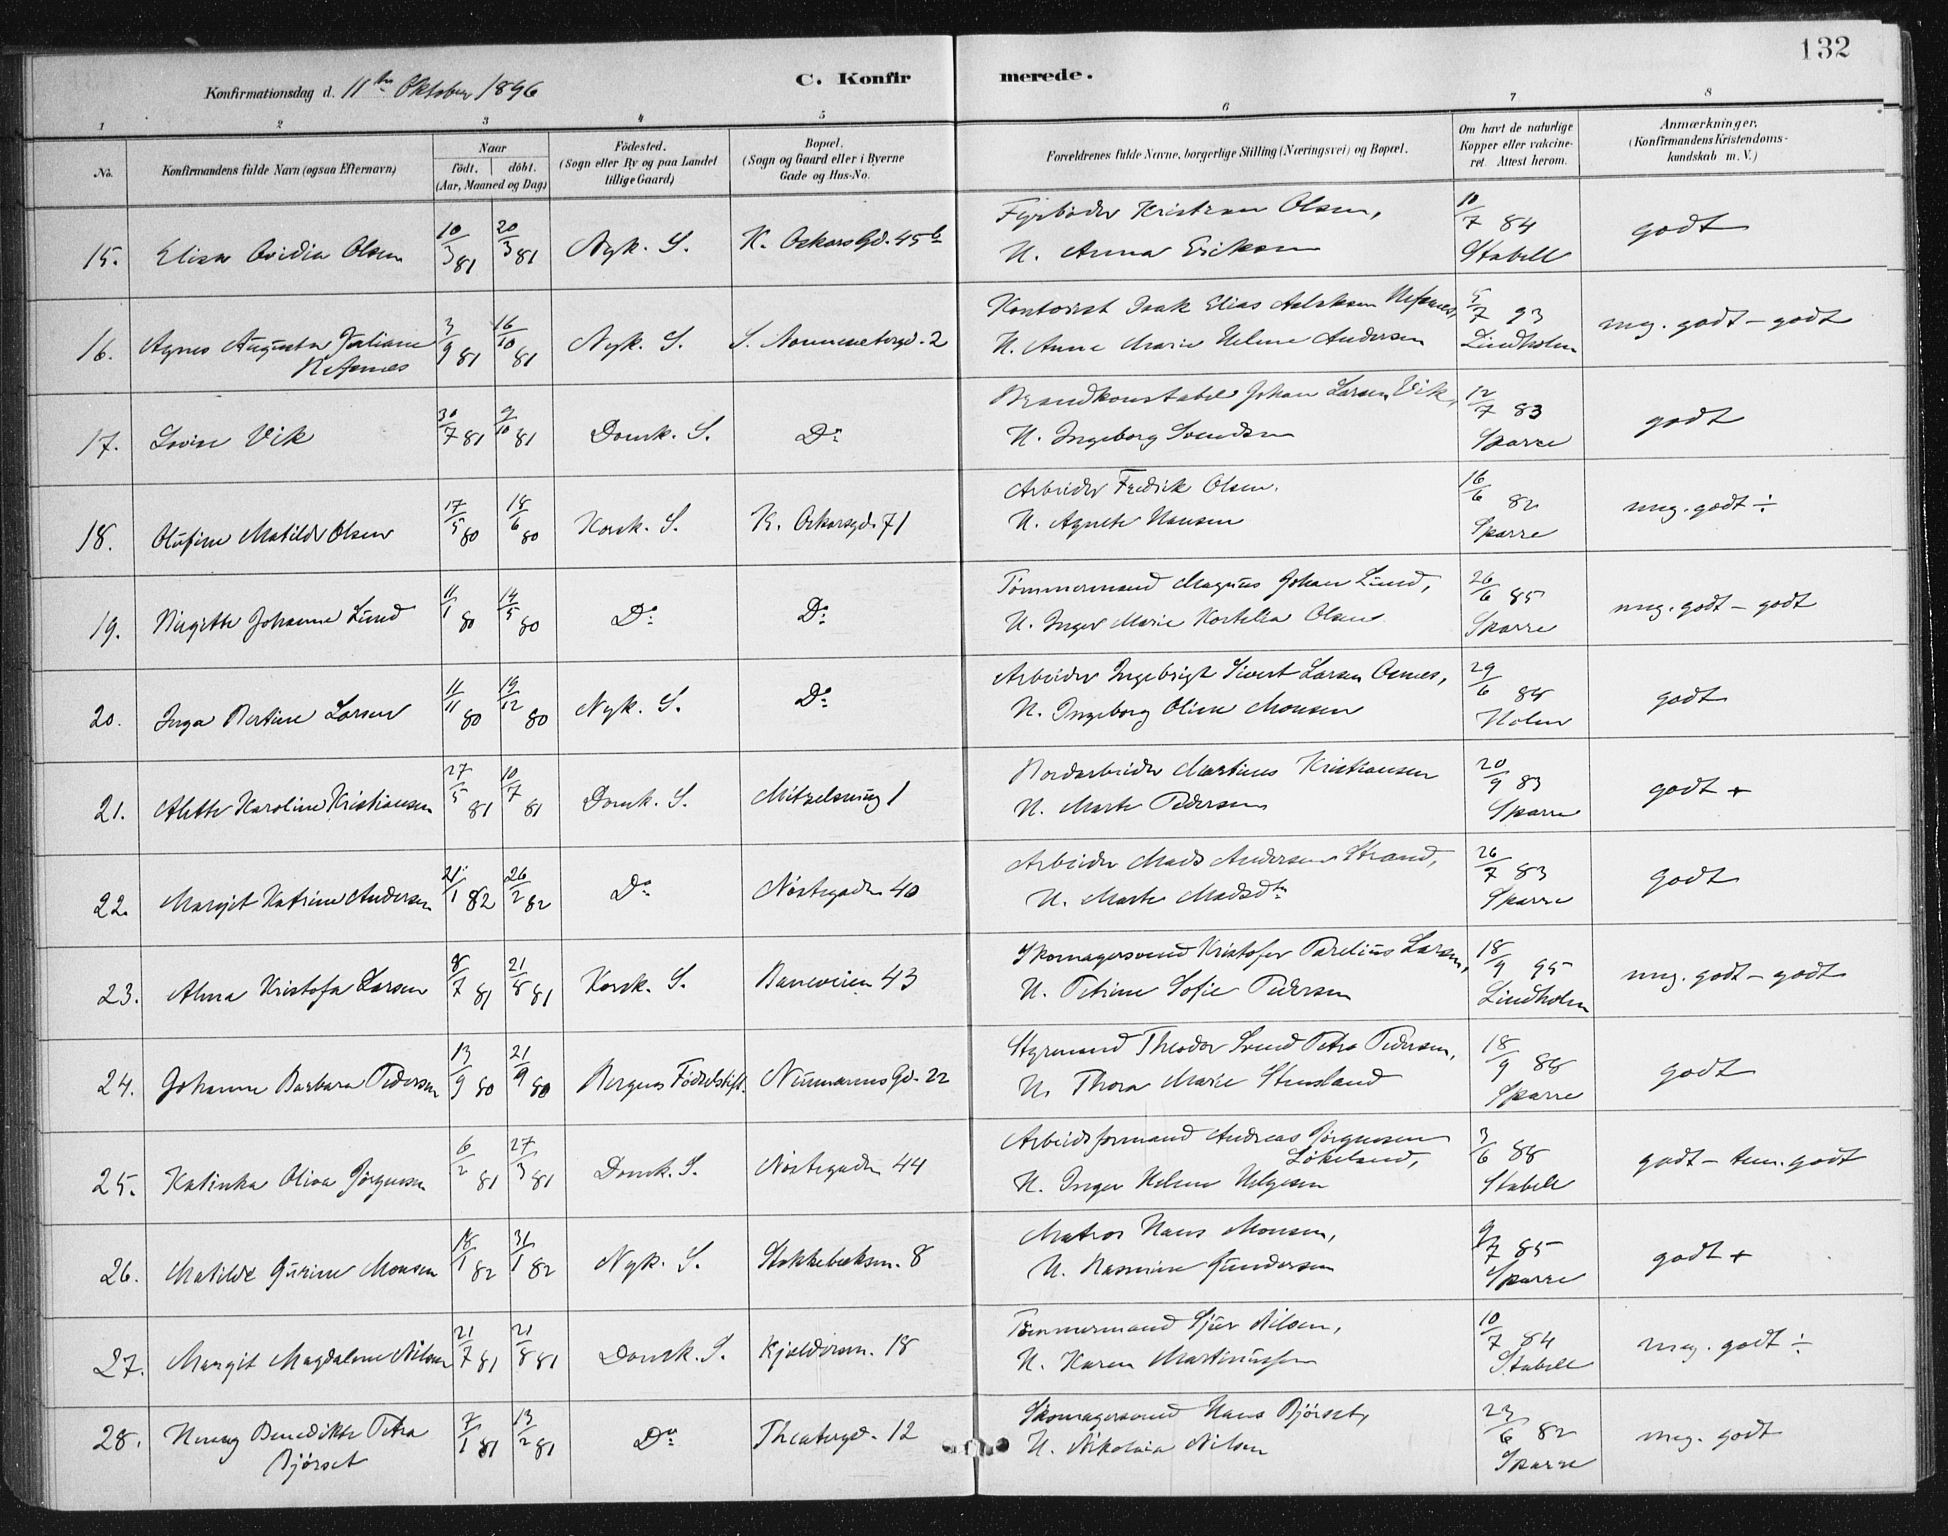 132
Konfirmationsdag d. 11te Oktober 1896
C. Konfirmerede.
1 2 3 4 5 6 7 8
No.
Konfirmandens fulde Navn (ogsaa Efternavn)
Naar
födt. döbt.
(Aar, Maaned og Dag)
Födested.
(Sogn eller By og paa Landet
tillige Gaard)
Bopæl.
(Sogn og Gaard eller i Byerne
Gade og Hus-No.
Forældrenes fulde Navne, borgerlige Stilling (Næringsvei) og Bopæl.
Om havt de naturlige
Kopper eller vakcine-
ret. Attest herom.
Anmærkninger.
(Konfirmandens Kristendoms-
kundskab m. V.)
15. Elisa Ovidia Olsen 10/3 81 20/3 81 Nyk. S. K. Oskars Gd. 45b
Fyrböder Kristian Olsen,
H. Anna Erikson
10/7 84 Stabell
godt
16. Agnes Augusta Juliane
Nefsnes
3/9 81 16/10 81 Nyk. S. S. Nonnesetergd. 2
Kontorist Isak Elias Aslaksen Nefsnes,
H. Anne Marie Helene Andersen
5/7 93 Lindholm
meg. godt - godt
17. Lovise Vik 30/7 81 9/10 81 Domk. S. Do
Brandkonstabel Johan Larsen Vik,
H. Ingeborg Svendsen
12/7 83 Sparre
godt
18. Olufine Matilde Olsen 17/5 80 18/6 80 Korsk. S. K. Oskarsgd. 71
Arbeider Fredrik Olsen.
H. Agnete Hansen
16/6 82 Sparre
meg. godt ÷
19. Birgitte Johanne Lund 11/1 80 14/5 80 Do Do
Tömmermand Magnus Johan Lund,
H. Inger Marie Olsen
26/6 85 Sparre
meg. godt - godt
20. Inga Bertine Larsen 11/11 80 19/12 80 Nyk. S. Do
Arbeider Ingebrigt Sivert Larsen Osnes,
H. Ingeborg Oline Monsen
29/6 88 Holm
godt
21. Alette Karoline Kristiansen 27/5 81 10/7 81 Domk. S. Mitzelsmug 1
Bordarbeider Martines Kristiansen
H. Marte Pedersen
20/9 83 Sparre
godt +
22. Margit Katrine Andersen 21/1 82 26/2 82 Do Nöstegaden 40
Arbeider Mads Andersen Strand,
H. Marte Madsdtr
26/7 83 Sparre
godt
23. Alma Kristofa Larsen 8/7 81 21/8 81 Korsk. S. Baneveien 43
Skomagersvend Kristofer Parelius Larsen,
H. Petrine Sofie Pedersen
18/9 95 Lindholm
meg. godt - godt
24. Johanne Barbara Pedersen 13/9 80 21/9 80 Bergens Födselsstift. Neumanns Gd. 22
Styrmand Theodor Svend Petra Pedersen,
H. Thora Marie Stensland
18/9 88 Sparre
godt
25. Katinka Oliva Jörgensen 6/2 81 27/3 81 Domk. S. Nöstegaden 44
Arbeidsformand Andreas Jörgensen
Lökeland,
H. Inger Helene Helgesen
3/6 88 Stabell
godt - tem. godt
26. Matilde Gurine Monsen 18/1 82 31/1 82 Nyk. S. Stokkebeksm. 8
Matros Hans Monsen,
H. Rasmine Gundersen
9/7 85 Sparre
godt +
27. Margit Magdalene Nilsen 21/7 81 21/8 81 Domk. S. Kjeldersm. 18
Tömmermand Sjur Nilsen,
H. Karen Martinussen
10/7 84 Stabell
meg. godt ÷
28. Henny Benedikte Petra
Bjórset
7/1 81 13/2 81 Do Theatergd. 12
Skomagersvend Hans Bjórset,
H. Nikolaia Nilsen
23/6 82 Sparre
meg. godt